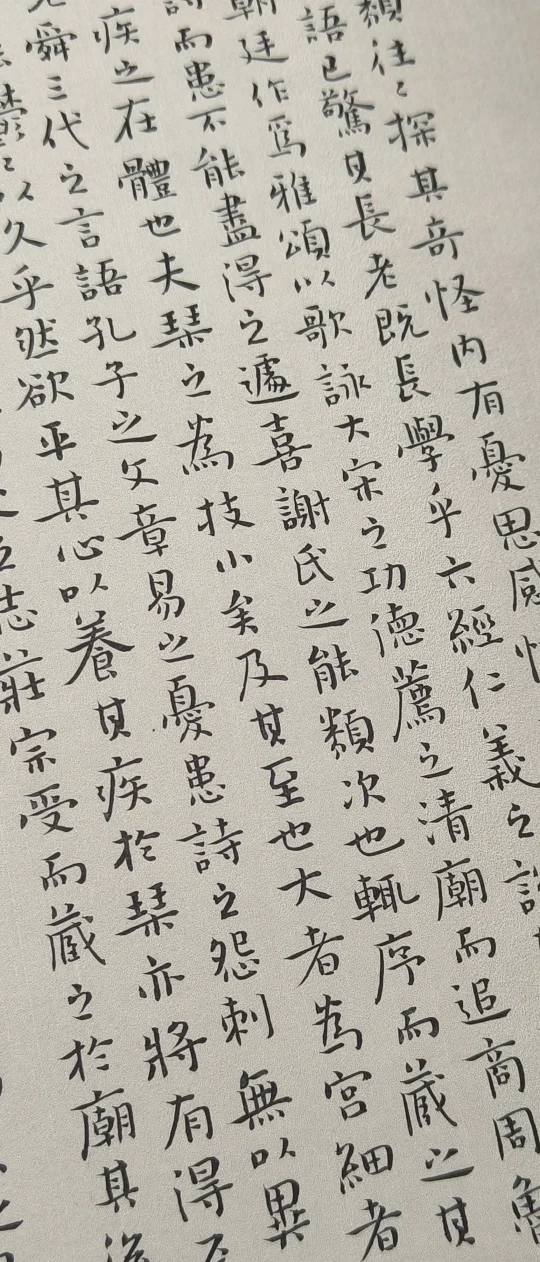 類往〻探其奇怪内有憂思感
語已驚其長老既長學乎六經仁義之說
朝廷作爲雅頌以歌詠大宋之功德薦之清廟而追商周魯
詩而患不能盡得之遽喜謝氏之能類次也輒序而蔵之其
疾之在體也夫琹之為技小矣及其至也大者為宮細者
舜三代之言語孔子之文章易之憂患詩之怨刺無以異
以久乎然欲平其心以養其疾於琹亦將有得
志莊宗受而蔵之於廟其後